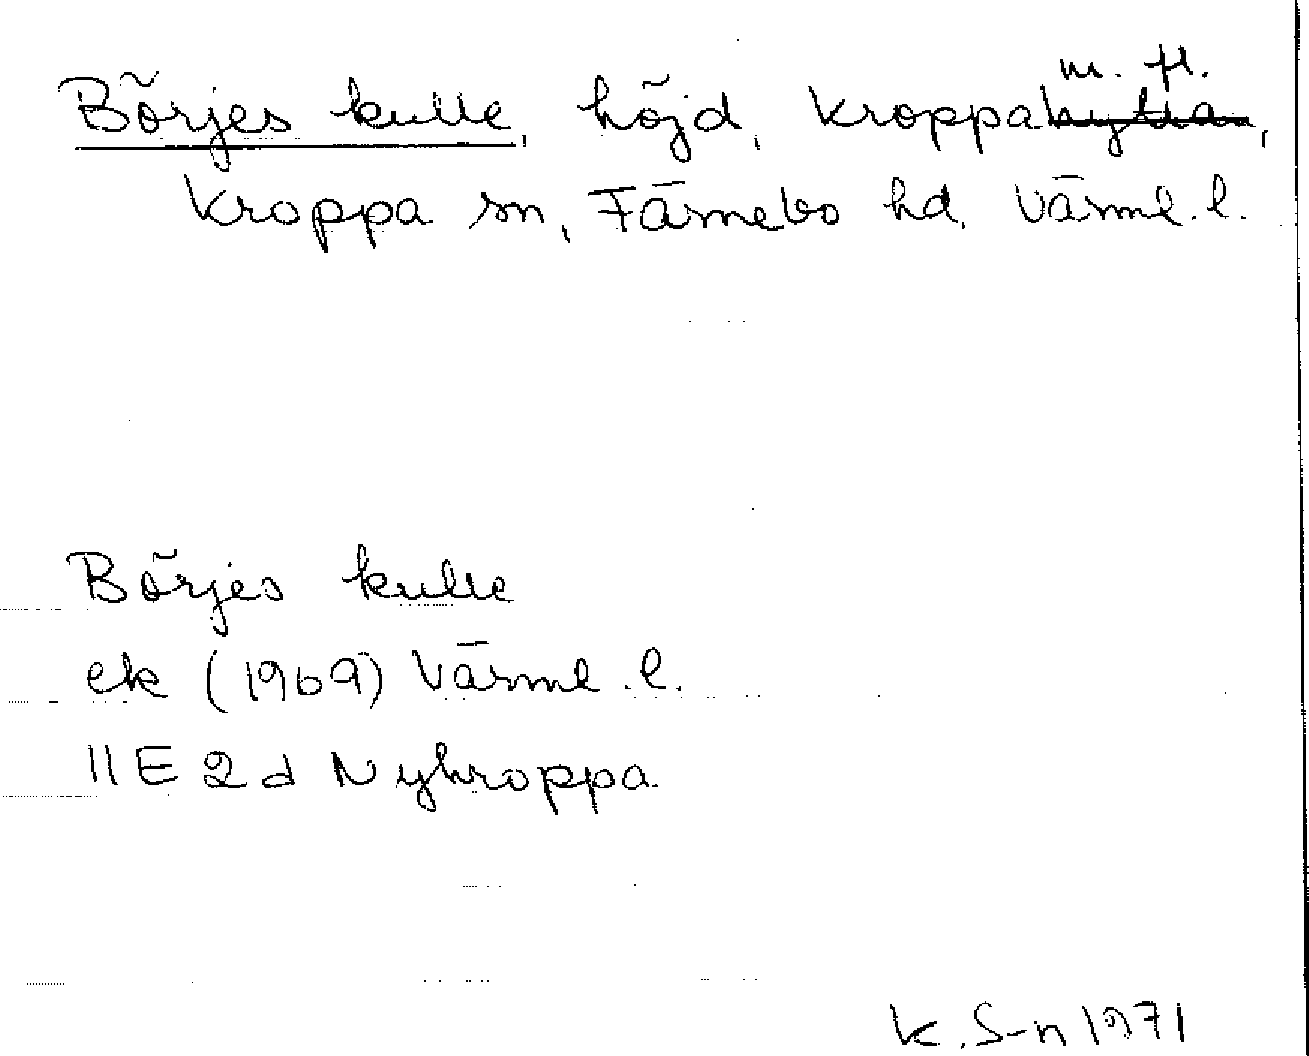 Börjes kulle, höjd, Kroppa m. fl.,
Kroppa sn, Färnebo hd, Värml. l.
Börjes kulle
ek (1969) Värml. l.
11E 2d Nykroppa
K. S-n 1971